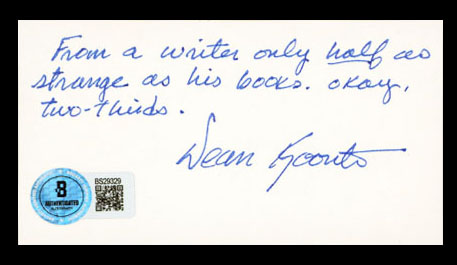 From a writer only half as
strange as his books. okay,
two-thirds.
Dean Koontz
BS29329
B
AUTHENTICATED